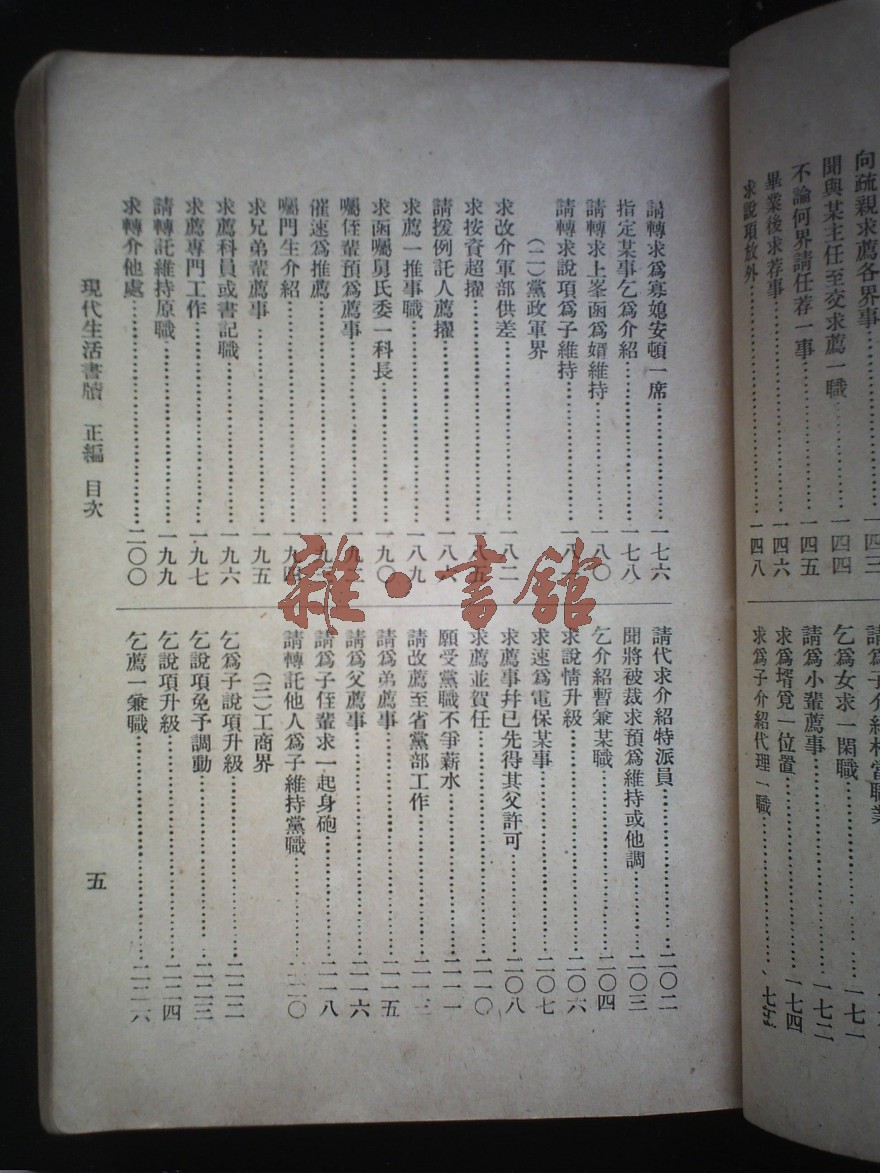 向疏親求薦各界事……一四三
聞與某主任至交求薦一職……一四四
不論何界請任荐一事……一四五
畢業後求荐事……一四六
求說項放外……一四八
乞爲女求一閑職……一七一
請爲小輩薦事……一七二
求爲壻覓一位置……一七四
求爲子介紹代理一職
請轉求爲寡媳安頓一席……一七六
指定某事乞爲介紹……一七八
請轉求上峯函爲婿維持……一八〇
請轉求說項爲子維持……一八
(二)黨政軍界
求改介軍部供差……一八二
求按資超擢……一八五
請援例託人薦擢……一八六
求薦一推事職……一八九
求函囑舅氏委一科長……一九〇
囑侄輩預爲薦事……一九
催速爲推薦……一九
囑門生介紹……一九四
求兄弟輩薦事……一九五
求薦科員或書記職……一九六
求薦專門工作……一九七
請轉託維持原職……一九九
求轉介他處……二〇〇
請代求介紹特派員……二〇二
聞將被裁求預爲維持或他調……二〇三
乞介紹暫兼某職……二〇四
求說情升級……二〇六
求速爲電保某事……二〇七
求薦事幷已先得其父許可……二〇八
求薦並賀任……二一〇
願受黨職不爭薪水……二一一
請改薦至省黨部工作……二一三
請爲弟薦事……二一五
請爲父薦事……二一六
請爲子侄輩求一起身砲……二一八
請轉託他人爲子維持黨職……二二〇
(三)工商界
乞爲子說項升級……二二二
乞說項免予調動……二二三
乞說項升級……二二四
乞薦一兼職……二二六
現代生活書牘 正編 目次
五
雜·書館